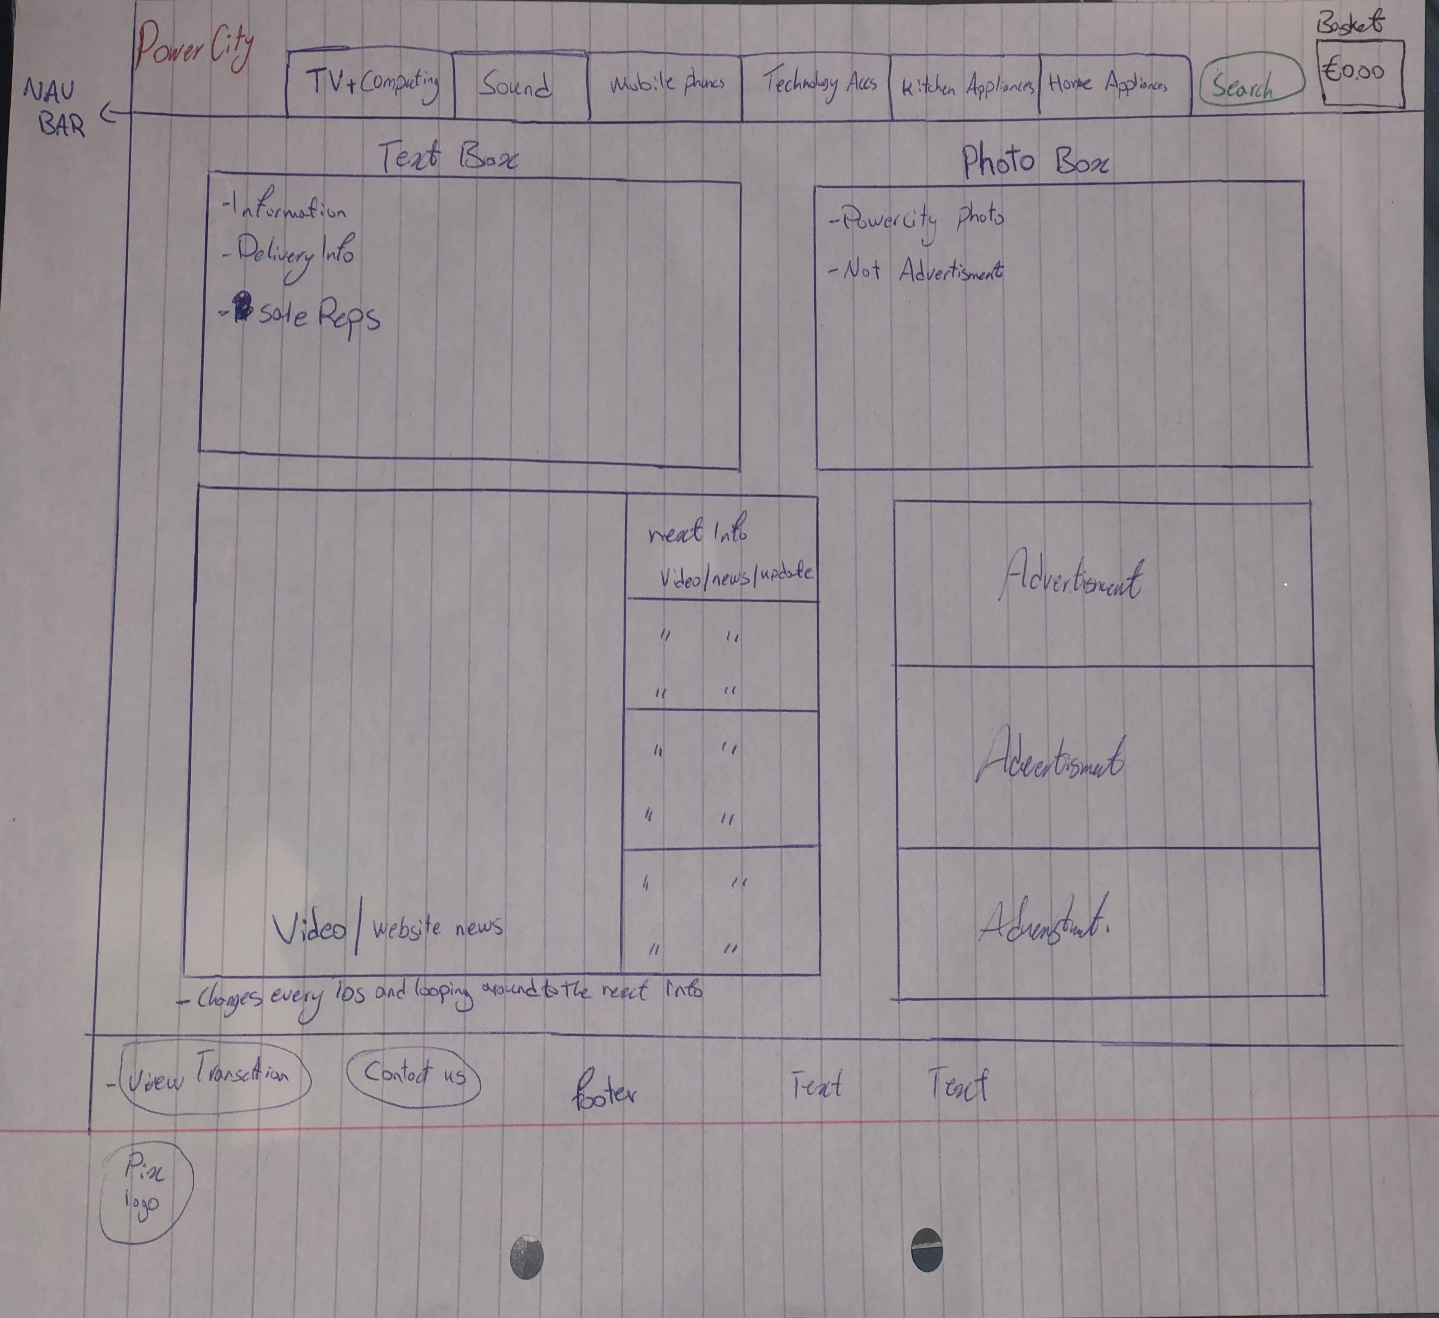 PowerCity
TV+Computing
Sound
Mobile phones
Technology Accs
Kitchen Appliances
Home Appliances
Search
Basket
€0.00
NAV
BAR
Text Box
-Information
-Delivery Info
- sale Reps
Photo Box
-Powercity photo
-Not Advertisment
next Info
Video/news/update
" "
" "
" "
" "
" "
" "
Video/website news
- Changes every 10s and looping around to the next Info
Advertisment
Advertisment
- View Transcation
Contact us
footer
Text
Text
Pix
logo